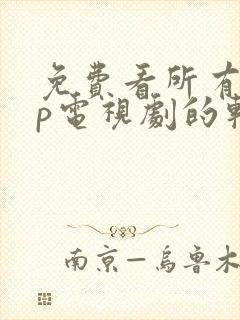 免費看所有
p電視劇的
南京—烏魯木